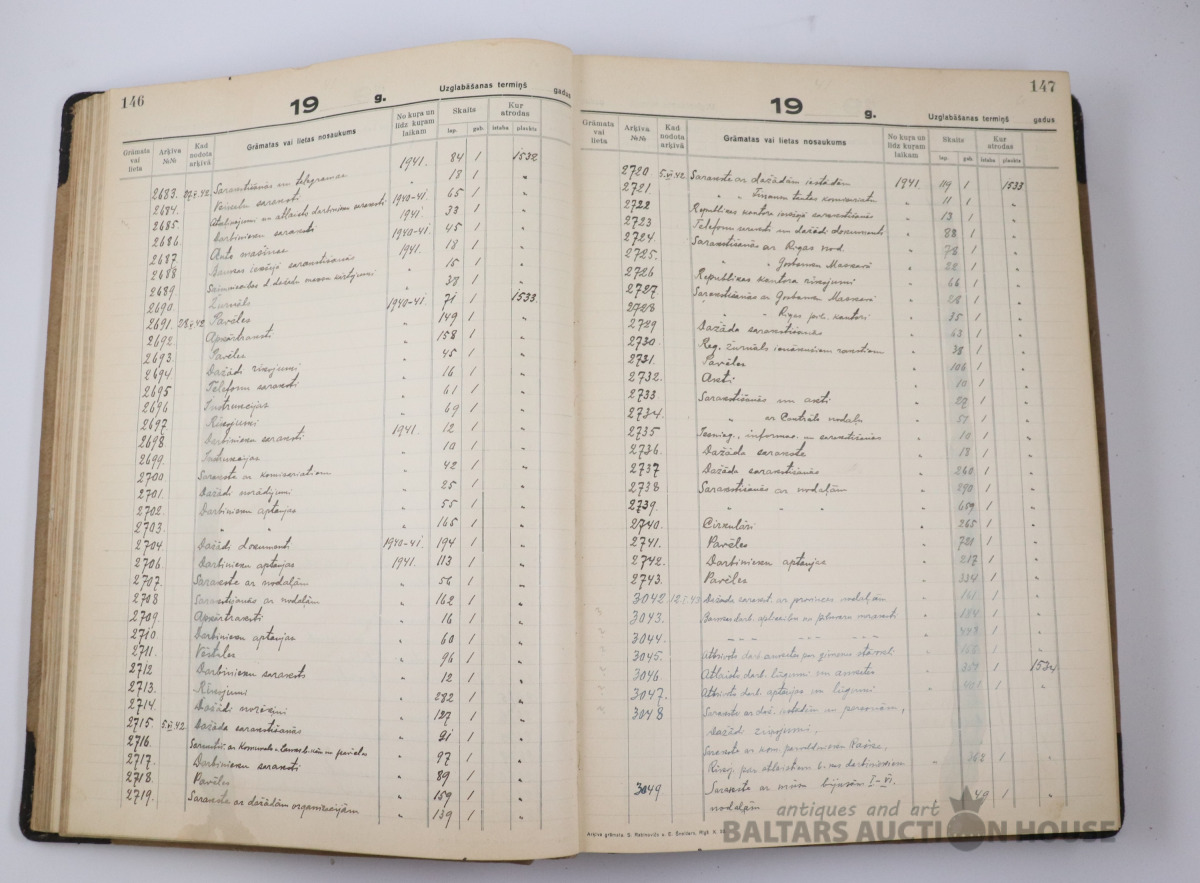 146
19 g.
Uzglabāšanas termiņš gadus
Grāmata vai lieta
Arķīva №№
Kad nodota arķīvā
Grāmatas vai lietas nosaukums
No kuŗa un līdz kuŗam laikam
Skaits
lap. gab.
Kur atrodas
istaba plaukts
2683. 27.V.42. Sarakstīšanās un telegrammas 1941. 84 1 1532
2684. Veicebu saraksti " 18 1 "
2685. 1940-41. 65 1 "
2686. Darbinieku saraksti 1941. 33 1 "
2687 Auto mašīnas 1940-41. 45 1 "
2688 1941. 18 1 "
2689 " 15 1 "
2690 Žurnāls " 38 1 "
2691. 28.V.42 Pavēles 1940-41. 71 1 1533.
2692. Apkārtraksti " 149 1 "
2693. Pavēles " 158 1 "
2694 Dažādi rīkojumi " 45 1 "
2695 Telefonu saraksti " 16 1 "
2696 Instrukcijas " 61 1 "
2697 Rīkojumi " 69 1 "
2698. Darbinieku saraksti 1941. 12 1 "
2699. Instrukcijas " 10 1 "
2700 Sarakste ar komisariātiem " 42 1 "
2701. Dažādi norādījumi " 25 1 "
2702. Darbinieku aptaujas " 55 1 "
2703. " " " 165 1 "
2704 Dažādi dokumenti 1940-41. 194 1 "
2706. Darbinieku aptaujas 1941. 113 1 "
2707. Sarakste ar nodaļām " 56 1 "
2708 Sarakstīšanās ar nodaļām " 162 1 "
2709. Apkārtraksti " 16 1 "
2710. Darbinieku aptaujas " 60 1 "
2711. Vēstules " 96 1 "
2712 Darbinieku saraksts " 12 1 "
2713. Rīkojumi " 282 1 "
2714. Dažādi norēķini " 127 1 "
2715. 5.VI.42. Dažāda sarakstīšanās " 91 1 "
2716. " 97 1 "
2717. Darbinieku saraksti " 89 1 "
2718 Pavēles " 159 1 "
2719. Sarakste ar dažādām organizacijām " 139 1 "
147
19 g.
Uzglabāšanas termiņš gadus
Grāmata vai lieta
Arķīva №№
Kad nodota arķīvā
Grāmatas vai lietas nosaukums
No kuŗa un līdz kuŗam laikam
Skaits
lap. gab.
Kur atrodas
istaba plaukts
2720 5.VI.42. Sarakste ar dažādām iestādēm 1941. 119 1 1533
2721. " " Finanšu tautas komisariātu " 11 1 "
2722 Republikas kantora iekšējā sarakstīšanās " 13 1 "
2723 Telefonu saraksti un dažādi dokumenti " 88 1 "
2724. Sarakstīšanās ar Rīgas nod. " 78 1 "
2725. " " Gosbanku Maskavā " 22 1 "
2726 Republikas kantora rīkojumi " 66 1 "
2727 Sarakstīšanās ar Gosbanku Maskavā " 28 1 "
2728 " " Rīgas pils. kantori " 35 1 "
2729 Dažāda sarakstīšanās " 63 1 "
2730. Reg. žurnāls ienākušiem rakstiem " 38 1 "
2731. Pavēles " 106 1 "
2732. Akti " 10 1 "
2733 Sarakstīšanās un akti " 29 1 "
2734. " ar Centrāls nodaļu " 51 1 "
2735 informac. un sarakstīšanās " 10 1 "
2736. Dažāda sarakste " 18 1 "
2737 Dažāda sarakstīšanās " 260 1 "
2738 Sarakstīšanās ar nodaļām " 290 1 "
2739. " " " " 659 1 "
2740. Cirkulāri " 265 1 "
2741. Pavēles " 721 1 "
2742. Darbinieku aptaujas " 217 1 "
2743. Pavēles " 334 1 "
3042. 12.I.43. Dažāda sarakst. ar provinces nodaļām " 161 1 "
3043. " 184 1 "
3044. " 443 1 "
3045. " 1 "
3046. Atlaisto darb. lūgumi un anketes " 359 1 1534
3047. Atbrīvoto darb. aptaujas un lūgumi " 1 "
3048 Sarakste ar daž. iestādēm un personām,
dažādi rīkojumi,
Sarakste ar kom. pārvaldnieku
Rīkoj. par atlaistiem b. kas darbiniekiem " 362 1 "
3049 Sarakste ar mūsu bijušām I-VI.
nodaļām 49 1 "
antiques and art
BALTARS AUCTION HOUSE